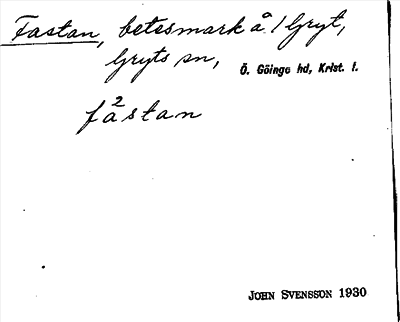 Fastan, betesmark å 1 Gryt,
Gryts sn, Ö. Göinge hd, Krist. l.
fa²stan
JOHN SVENSSON 1930